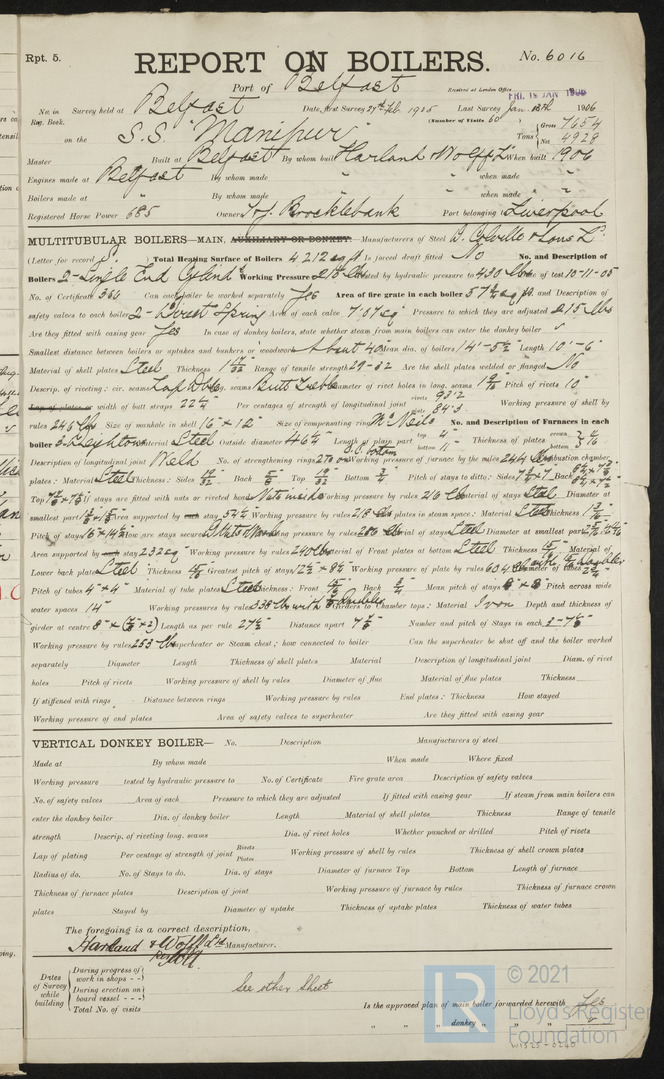 Rpt. 5.
REPORT ON BOILERS.
No. 6016
Port of Belfast
Received at London Office
FRI. 19 JAN 1906
No. in Survey held at Belfast Date, first Survey 27th Feb. 1905 Last Survey Jan. 1906
Reg. Book. (Number of Visits 60
on the S.S. "Manipur" Tons Gross 7654 Net 4928
Master Built at Belfast By whom built Harland & Wolff Ld When built 1906
Engines made at Belfast By whom made " when made "
Boilers made at " By whom made " when made "
Registered Horse Power 685 Owners T & J. Brocklebank Port belonging to Liverpool
MULTITUBULAR BOILERS—MAIN, AUXILIARY OR DONKEY.—Manufacturers of Steel D. Colville & Sons Ld
(Letter for record S) Total Heating Surface of Boilers 4212 sq ft Is forced draft fitted No No. and Description of
Boilers 2 - Single End Cylind'l Working Pressure 215 lbs Tested by hydraulic pressure to 430 lbs Date of test 10-11-05
No. of Certificate 366 Can each boiler be worked separately Yes Area of fire grate in each boiler 57 sq ft No. and Description of
safety valves to each boiler 2 - Direct Spring Area of each valve 7.07 sq" Pressure to which they are adjusted 215 lbs
Are they fitted with easing gear Yes In case of donkey boilers, state whether steam from main boilers can enter the donkey boiler
Smallest distance between boilers or uptakes and bunkers or woodwork About 40" Mean dia. of boilers 14'-5½" Length 10'-6"
Material of shell plates Steel Thickness Range of tensile strength 29-32 Are the shell plates welded or flanged No
Descrip. of riveting: cir. seams Lap Dble long. seams Butt Treble Diameter of rivet holes in long. seams Pitch of rivets 10"
Lap of plates or width of butt straps 22¼ Per centages of strength of longitudinal joint rivets 93.2 plates 84.3 Working pressure of shell by
rules 245 lbs Size of manhole in shell 16" x 12" Size of compensating ring McNeils No. and Description of Furnaces in each
boiler 3 Deightons Material Steel Outside diameter 46½ Length of plain part top bottom Thickness of plates crown bottom
Description of longitudinal joint Weld No. of strengthening rings Working pressure of furnace by the rules 244 lbs Combustion chamber
plates: Material Steel Thickness: Sides Back Top Bottom Pitch of stays to ditto: Sides Back
Top If stays are fitted with nuts or riveted heads Nuts inside Working pressure by rules 216 lbs Material of stays Steel Diameter at
smallest part Area supported by each stay 54½ Working pressure by rules 218 End plates in steam space: Material Steel Thickness
Pitch of stays How are stays secured D Nuts & Wash Working pressure by rules Material of stays Steel Diameter at smallest part
Area supported by each stay 232 sq" Working pressure by rules 240 lbs Material of Front plates at bottom Steel Thickness Material of
Lower back plate Steel Thickness Greatest pitch of stays Working pressure of plate by rules Diameter of tubes
Pitch of tubes 4" x 4" Material of tube plates Steel Thickness: Front Back Mean pitch of stays 8" x 8" Pitch across wide
water spaces 14" Working pressures by rules 338 lbs with Doublers Girders to Chamber tops: Material Iron Depth and thickness of
girder at centre Length as per rule Distance apart 7½ Number and pitch of Stays in each 3-7½"
Working pressure by rules 233 lbs Superheater or Steam chest; how connected to boiler Can the superheater be shut off and the boiler worked
separately Diameter Length Thickness of shell plates Material Description of longitudinal joint Diam. of rivet
holes Pitch of rivets Working pressure of shell by rules Diameter of flue Material of flue plates Thickness
If stiffened with rings Distance between rings Working pressure by rules End plates: Thickness How stayed
Working pressure of end plates Area of safety valves to superheater Are they fitted with easing gear
VERTICAL DONKEY BOILER— No. Description Manufacturers of steel
Made at By whom made When made Where fixed
Working pressure tested by hydraulic pressure to No. of Certificate Fire grate area Description of safety valves
No. of safety valves Area of each Pressure to which they are adjusted If fitted with easing gear If steam from main boilers can
enter the donkey boiler Dia. of donkey boiler Length Material of shell plates Thickness Range of tensile
strength Descrip. of riveting long. seams Dia. of rivet holes Whether punched or drilled Pitch of rivets
Lap of plating Per centage of strength of joint Rivets Plates Working pressure of shell by rules Thickness of shell crown plates
Radius of do. No. of Stays to do. Dia. of stays Diameter of furnace Top Bottom Length of furnace
Thickness of furnace plates Description of joint Working pressure of furnace by rules Thickness of furnace crown
plates Stayed by Diameter of uptake Thickness of uptake plates Thickness of water tubes
The foregoing is a correct description,
Harland & Wolff Ltd Manufacturer.
Dates of Survey while building
During progress of work in shops - -
During erection on board vessel - - -
Total No. of visits
See other Sheet
Is the approved plan of main boiler forwarded herewith Yes
" " donkey " " "
© 2021
LR
Lloyd's Register
Foundation
W1525-0240